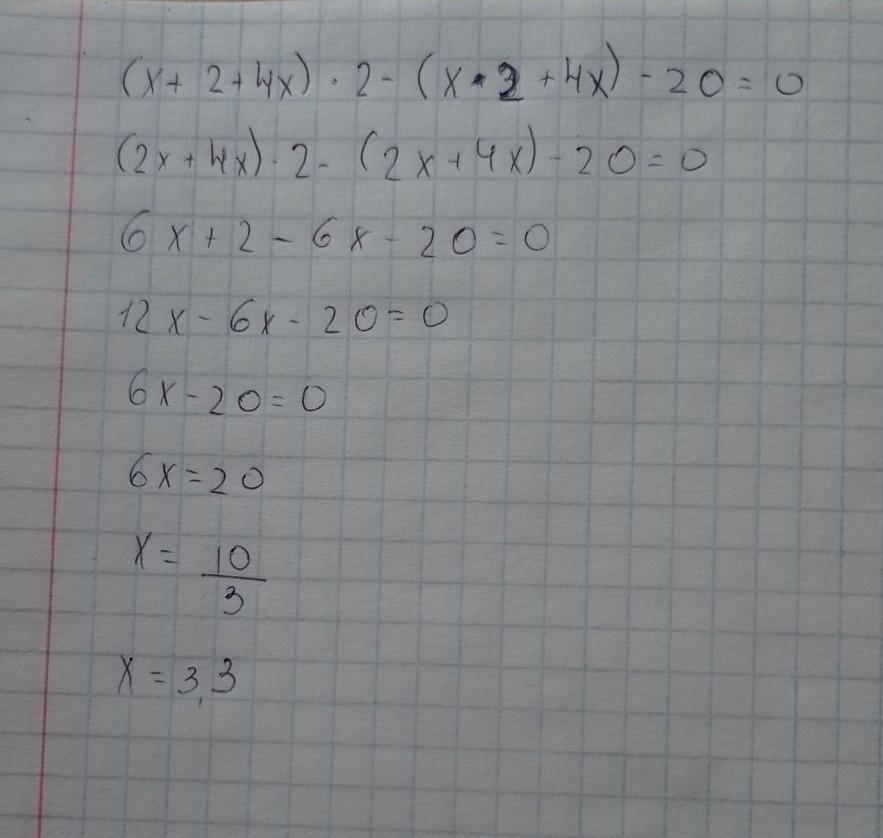 (x + 2 + 4x) · 2 - (x · 2 + 4x) - 20 = 0
(2x + 4x) · 2 - (2x + 4x) - 20 = 0
6x + 2 - 6x - 20 = 0
12x - 6x - 20 = 0
6x - 20 = 0
6x = 20
x = 10/3
x = 3,3